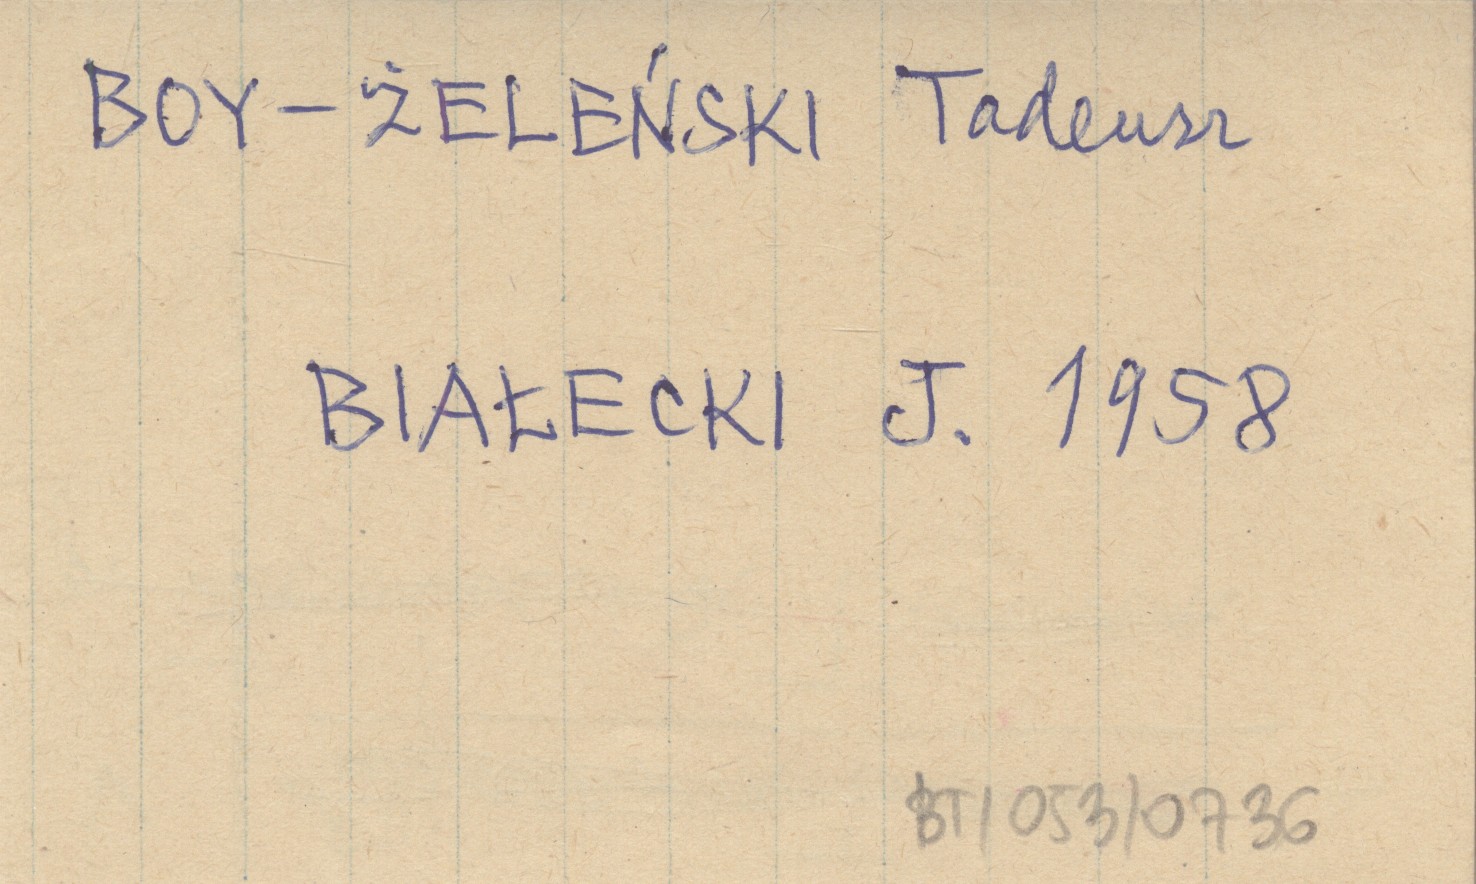 BOY-ŻELEŃSKI Tadeusz
BIAŁECKI J. 1958
BT/053/0736